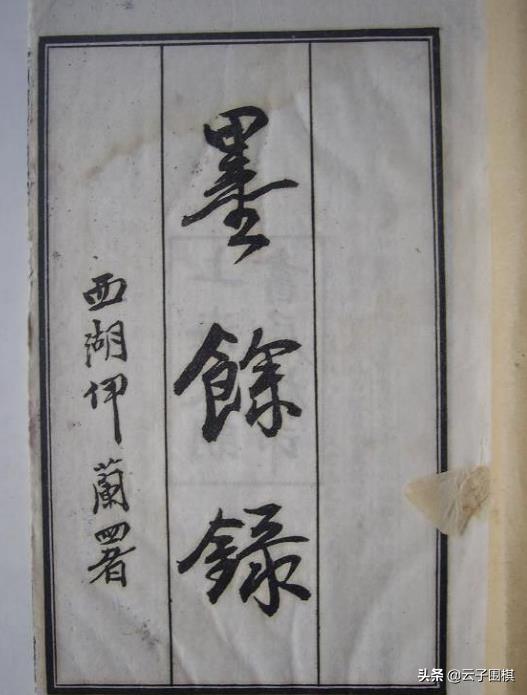 墨餘録
西湖伊蘭署
头条 @云子围棋